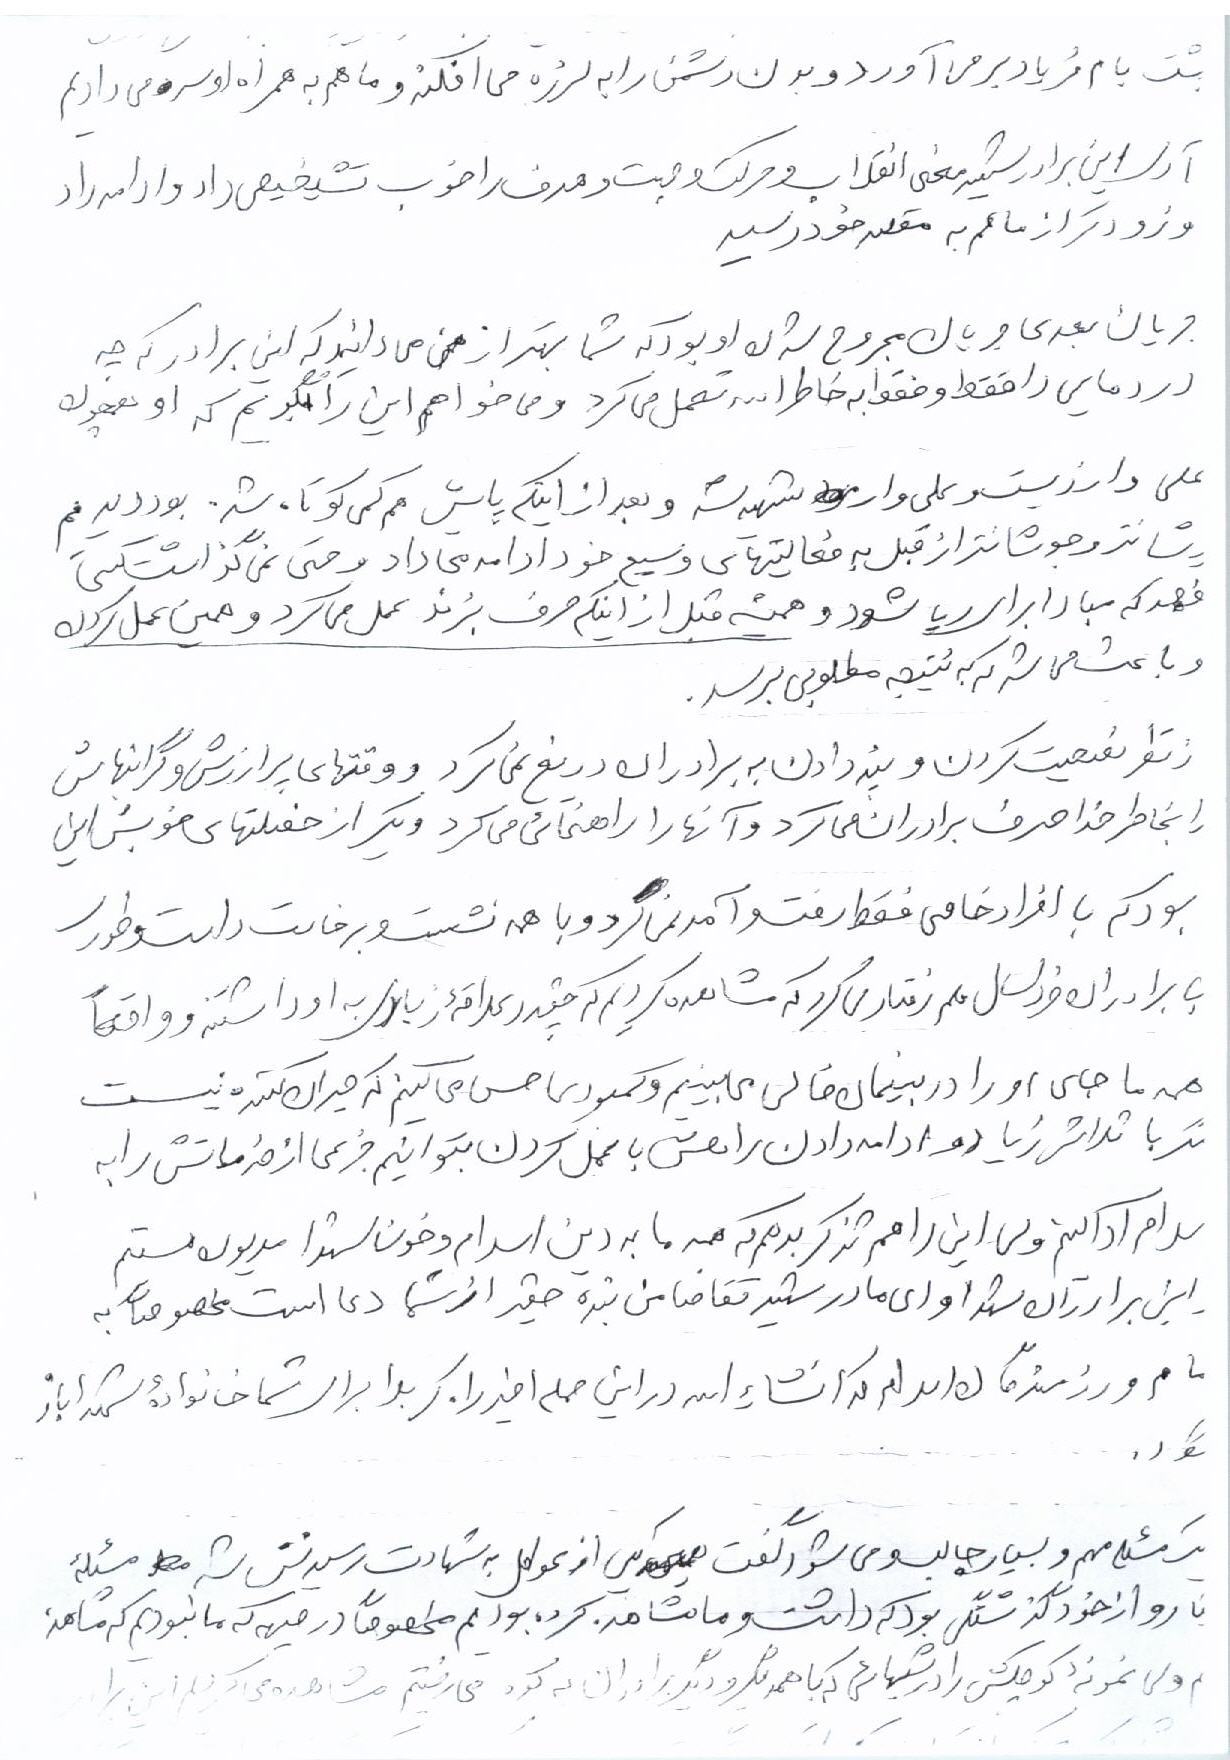 پشت بام فریاد برمی آورد و بدن دشمن را به لرزه می افکند و ما هم به همراه او سر می دادیم
آری این برادر شهید معنی انقلاب و حرکت و جهت و هدف را خوب تشخیص داد و ادامه داد
و زودتر از ما هم به مقصد خود رسید
جریان بعدی جریان مجروح شدن او بود که شما بهتر از من می دانید که این برادر که چه
دردهایی را فقط و فقط به خاطر الله تحمل می کرد و می خواهم این را بگویم که او همچون
علی وار زیست و علی وار شهید شد و بعد از اینکه پایش هم کمی کوتاه شده بود دیدیم
تر و جوشانتر از قبل به فعالیتهای وسیع خود ادامه می داد و حتی نمی گذاشت کسی
فهمد که مبادا برای ریا شود و همیشه قبل از اینکه حرف بزند عمل می کرد و همین عمل کردن
و باعث می شد که به نتیجه مطلوبی برسد.
ز نظر نصیحت کردن و پند دادن به برادران دریغ نمی کرد و وقتهای پر ارزش و گرانبهایش
را بخاطر خدا صرف برادران می کرد و آنها را راهنمائی می کرد و یکی از خصلتهای خوبش این
بود که با افراد خاصی فقط رفت و آمد نمی کرد و با همه نشست و برخاست داشت و طوری
با برادران خردسال هم رفتار می کرد که مشاهده کردیم که چقدر علاقهٔ زیادی به او داشتند و واقعاً
همه ما جای او را در بینمان خالی می بینیم و کمبودی حس می کنیم که جبران کننده نیست
گر با تلاش زیاد و ادامه دادن راهش با عمل کردن بتوانیم جزئی از خدماتش را به
سلام ادا کنیم ولی این را هم تذکر بدهم که همه ما به دین اسلام و خون شهدا مدیون هستیم
ای برادران شهدا و ای مادر شهید تقاضا من بنده حقیر از شما دعا است مخصوصاً به
مام و رزمندگان اسلام که انشاء الله در این حمله اخیر راه کربلا برای شما خانوادهٔ شهدا باز
گردد.
یک مسئله مهم و بسیار جالب و می شود گفت یکی از عوامل به شهادت رسیدنش شد مسئلهٔ
و از خود گذشتگی بود که داشت و ما مشاهده کرده بودیم مخصوصاً در جبهه که ما نبودیم که مشاهده
م ولی نمونهٔ کوچکش را در شبهائی که با همدیگر و دیگر برادران به کوه می رفتیم مشاهده می کردیم این برادر